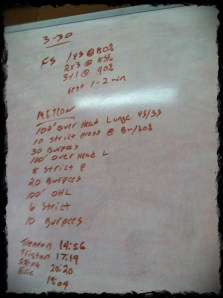 3-30
FS 1x5 @ 80%
2x3 @ 85%
3x1 @ 90%
rest 1-2 min
METCON
100' Over Head Lunge 45/35
10 Strict press @
30 Burpees
100' Over Head L
8 Strict P
20 Burpees
100' OHL
6 Strict
10 Burpees
14:56
Tristan 17:19
20:20